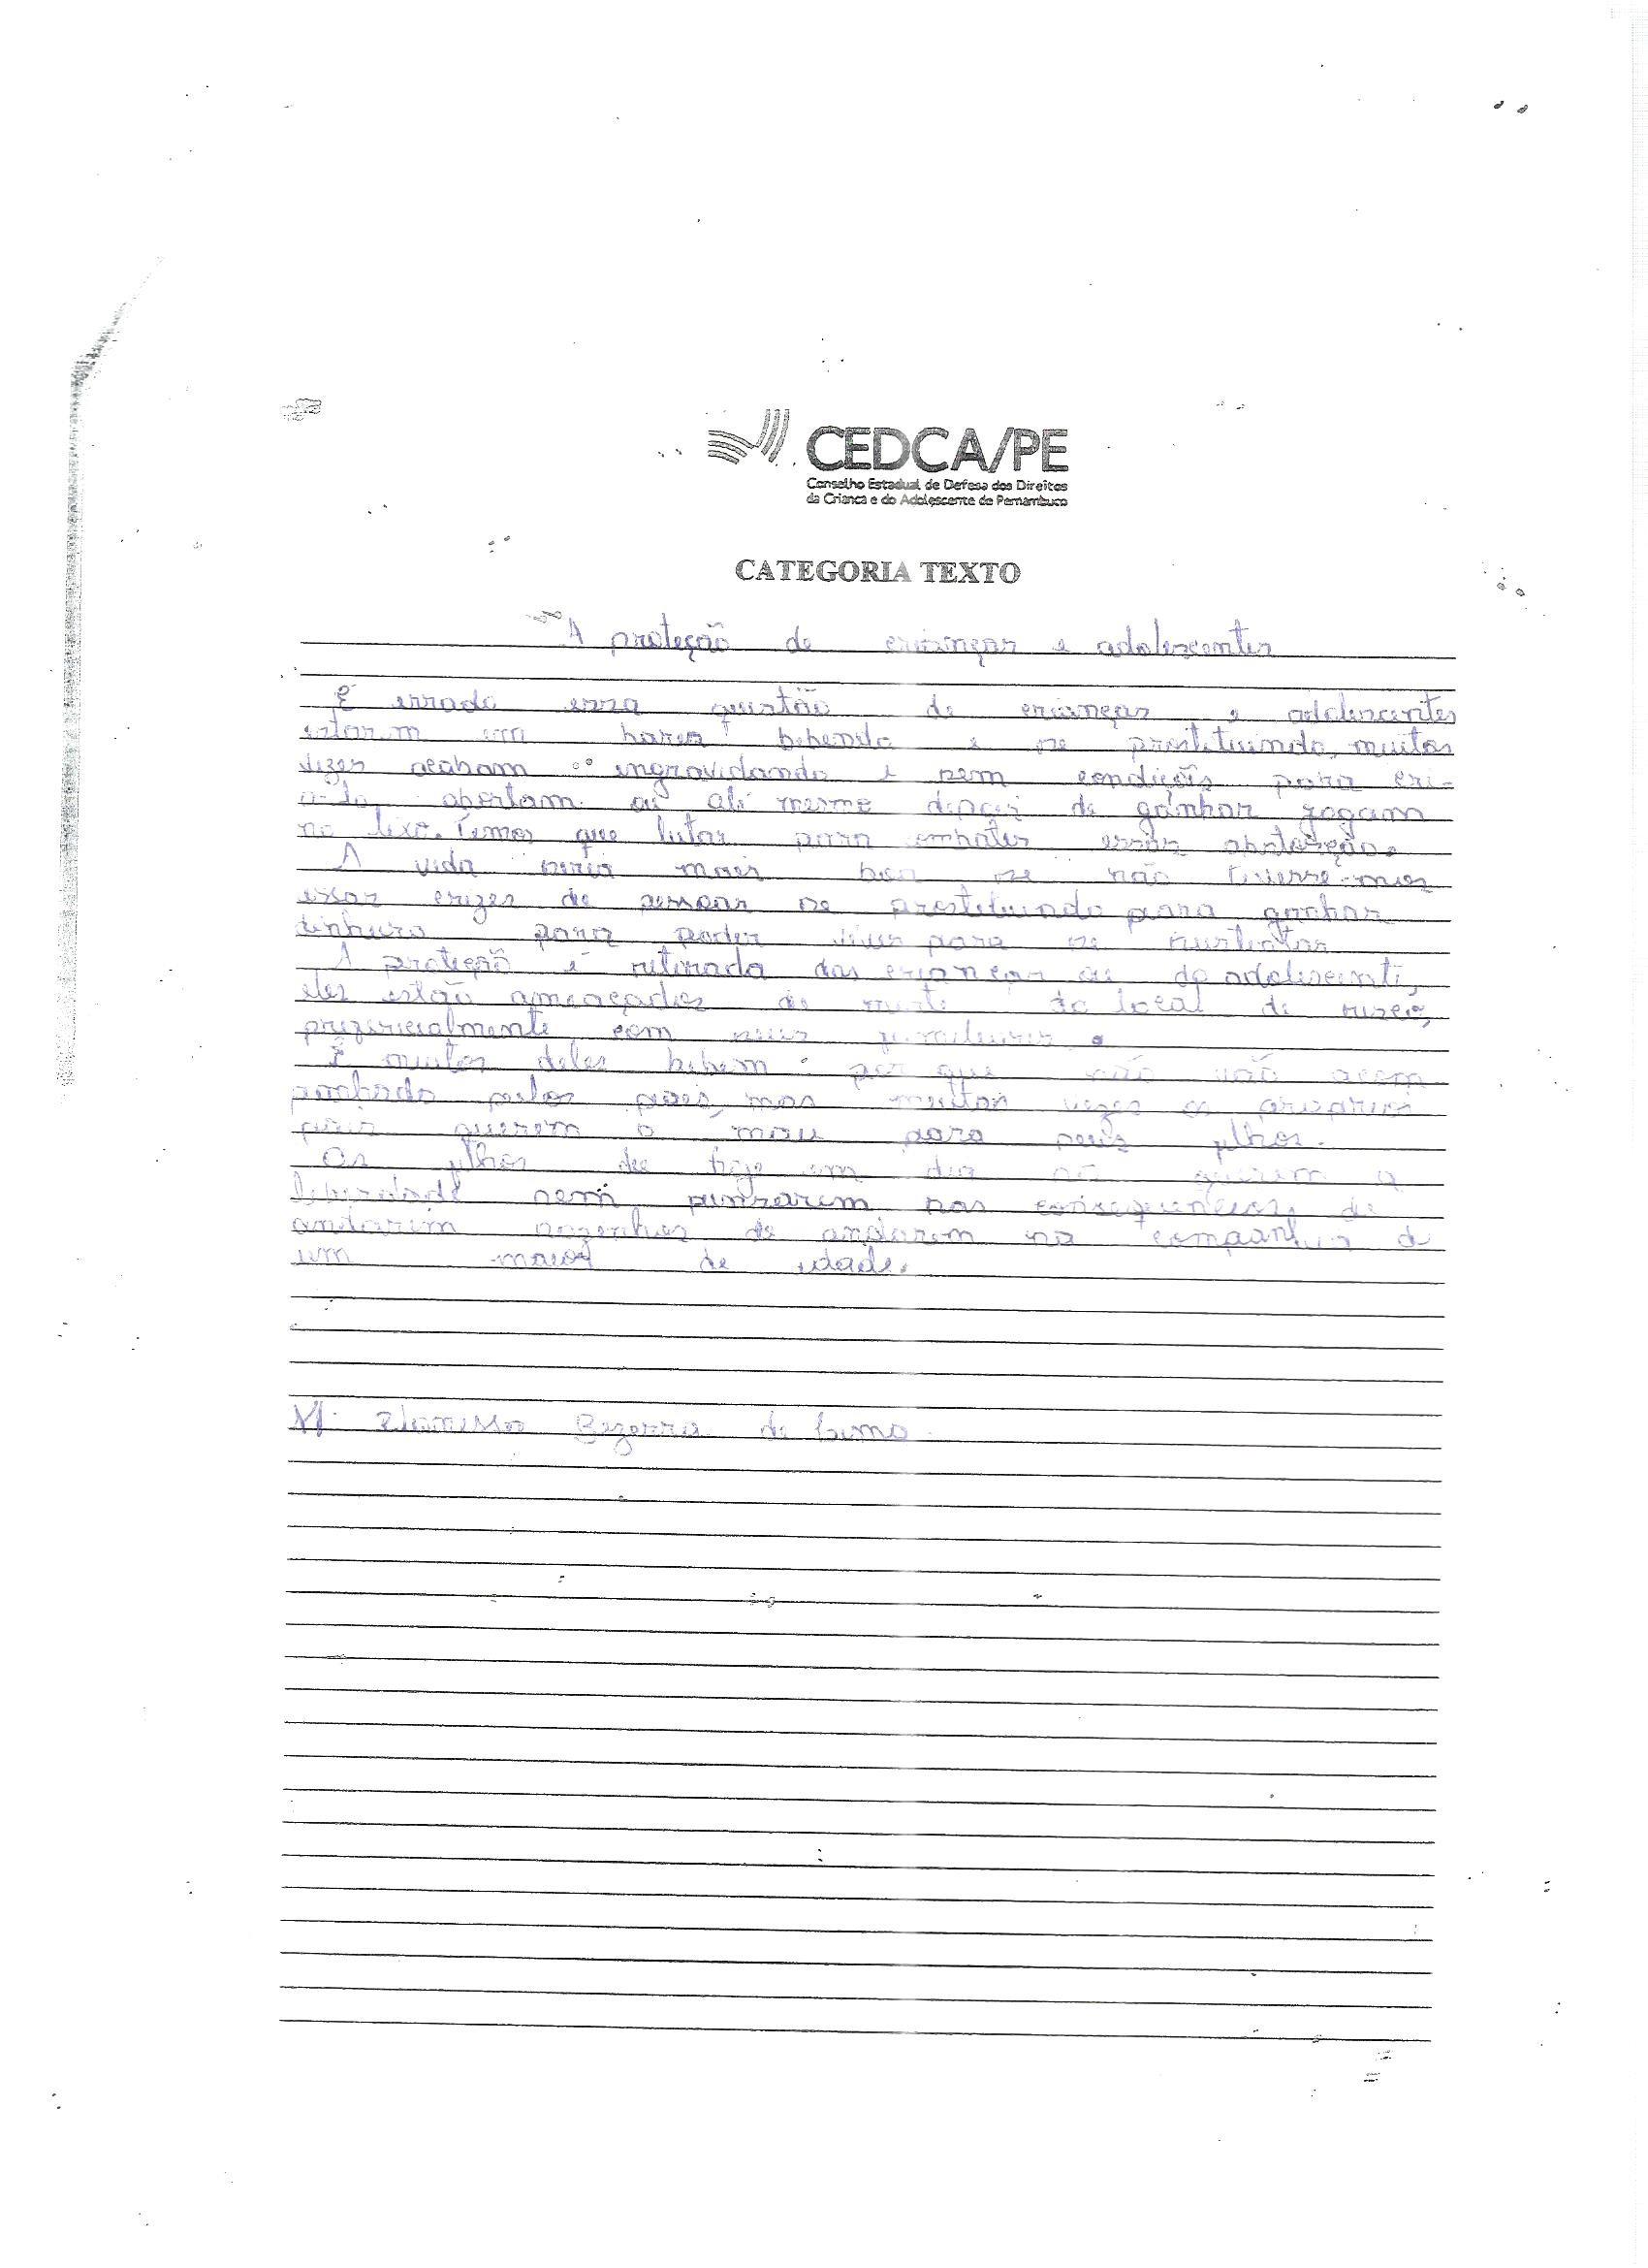 CEDCA/PE
Conselho Estadual de Defesa dos Direitos
da Criança e do Adolescente de Pernambuco
CATEGORIA TEXTO
A proteção de crianças e adolescentes
É errado essa questão de crianças e adolescentes
estarem em bares bebendo e se prostituindo, muitas
vezes acabam engravidando e sem condições para cri-
a-lo, abortam ou até mesmo depois de ganhar jogam
no lixo. Temos que lutar para combater essas
A vida seria mais boa se não tivesse mos
essas crizes de pessoas se prostituindo para ganhar
dinheiro para poder viver para se sustentar
A proteção é retirada das crianças ou do adolescente,
eles estão ameaçados de morte do local de
com seus
E muitos deles bebem por que não são acom
panhado pelos pais, mas muitas vezes os proprios
pais querem o mau para seus filhos.
Os filhos de hoje em dia não querem a
liberdade nem pensarem nas consequências, de
andarem de andarem na companhia d
um maior de idade.
Bezerra de Lima